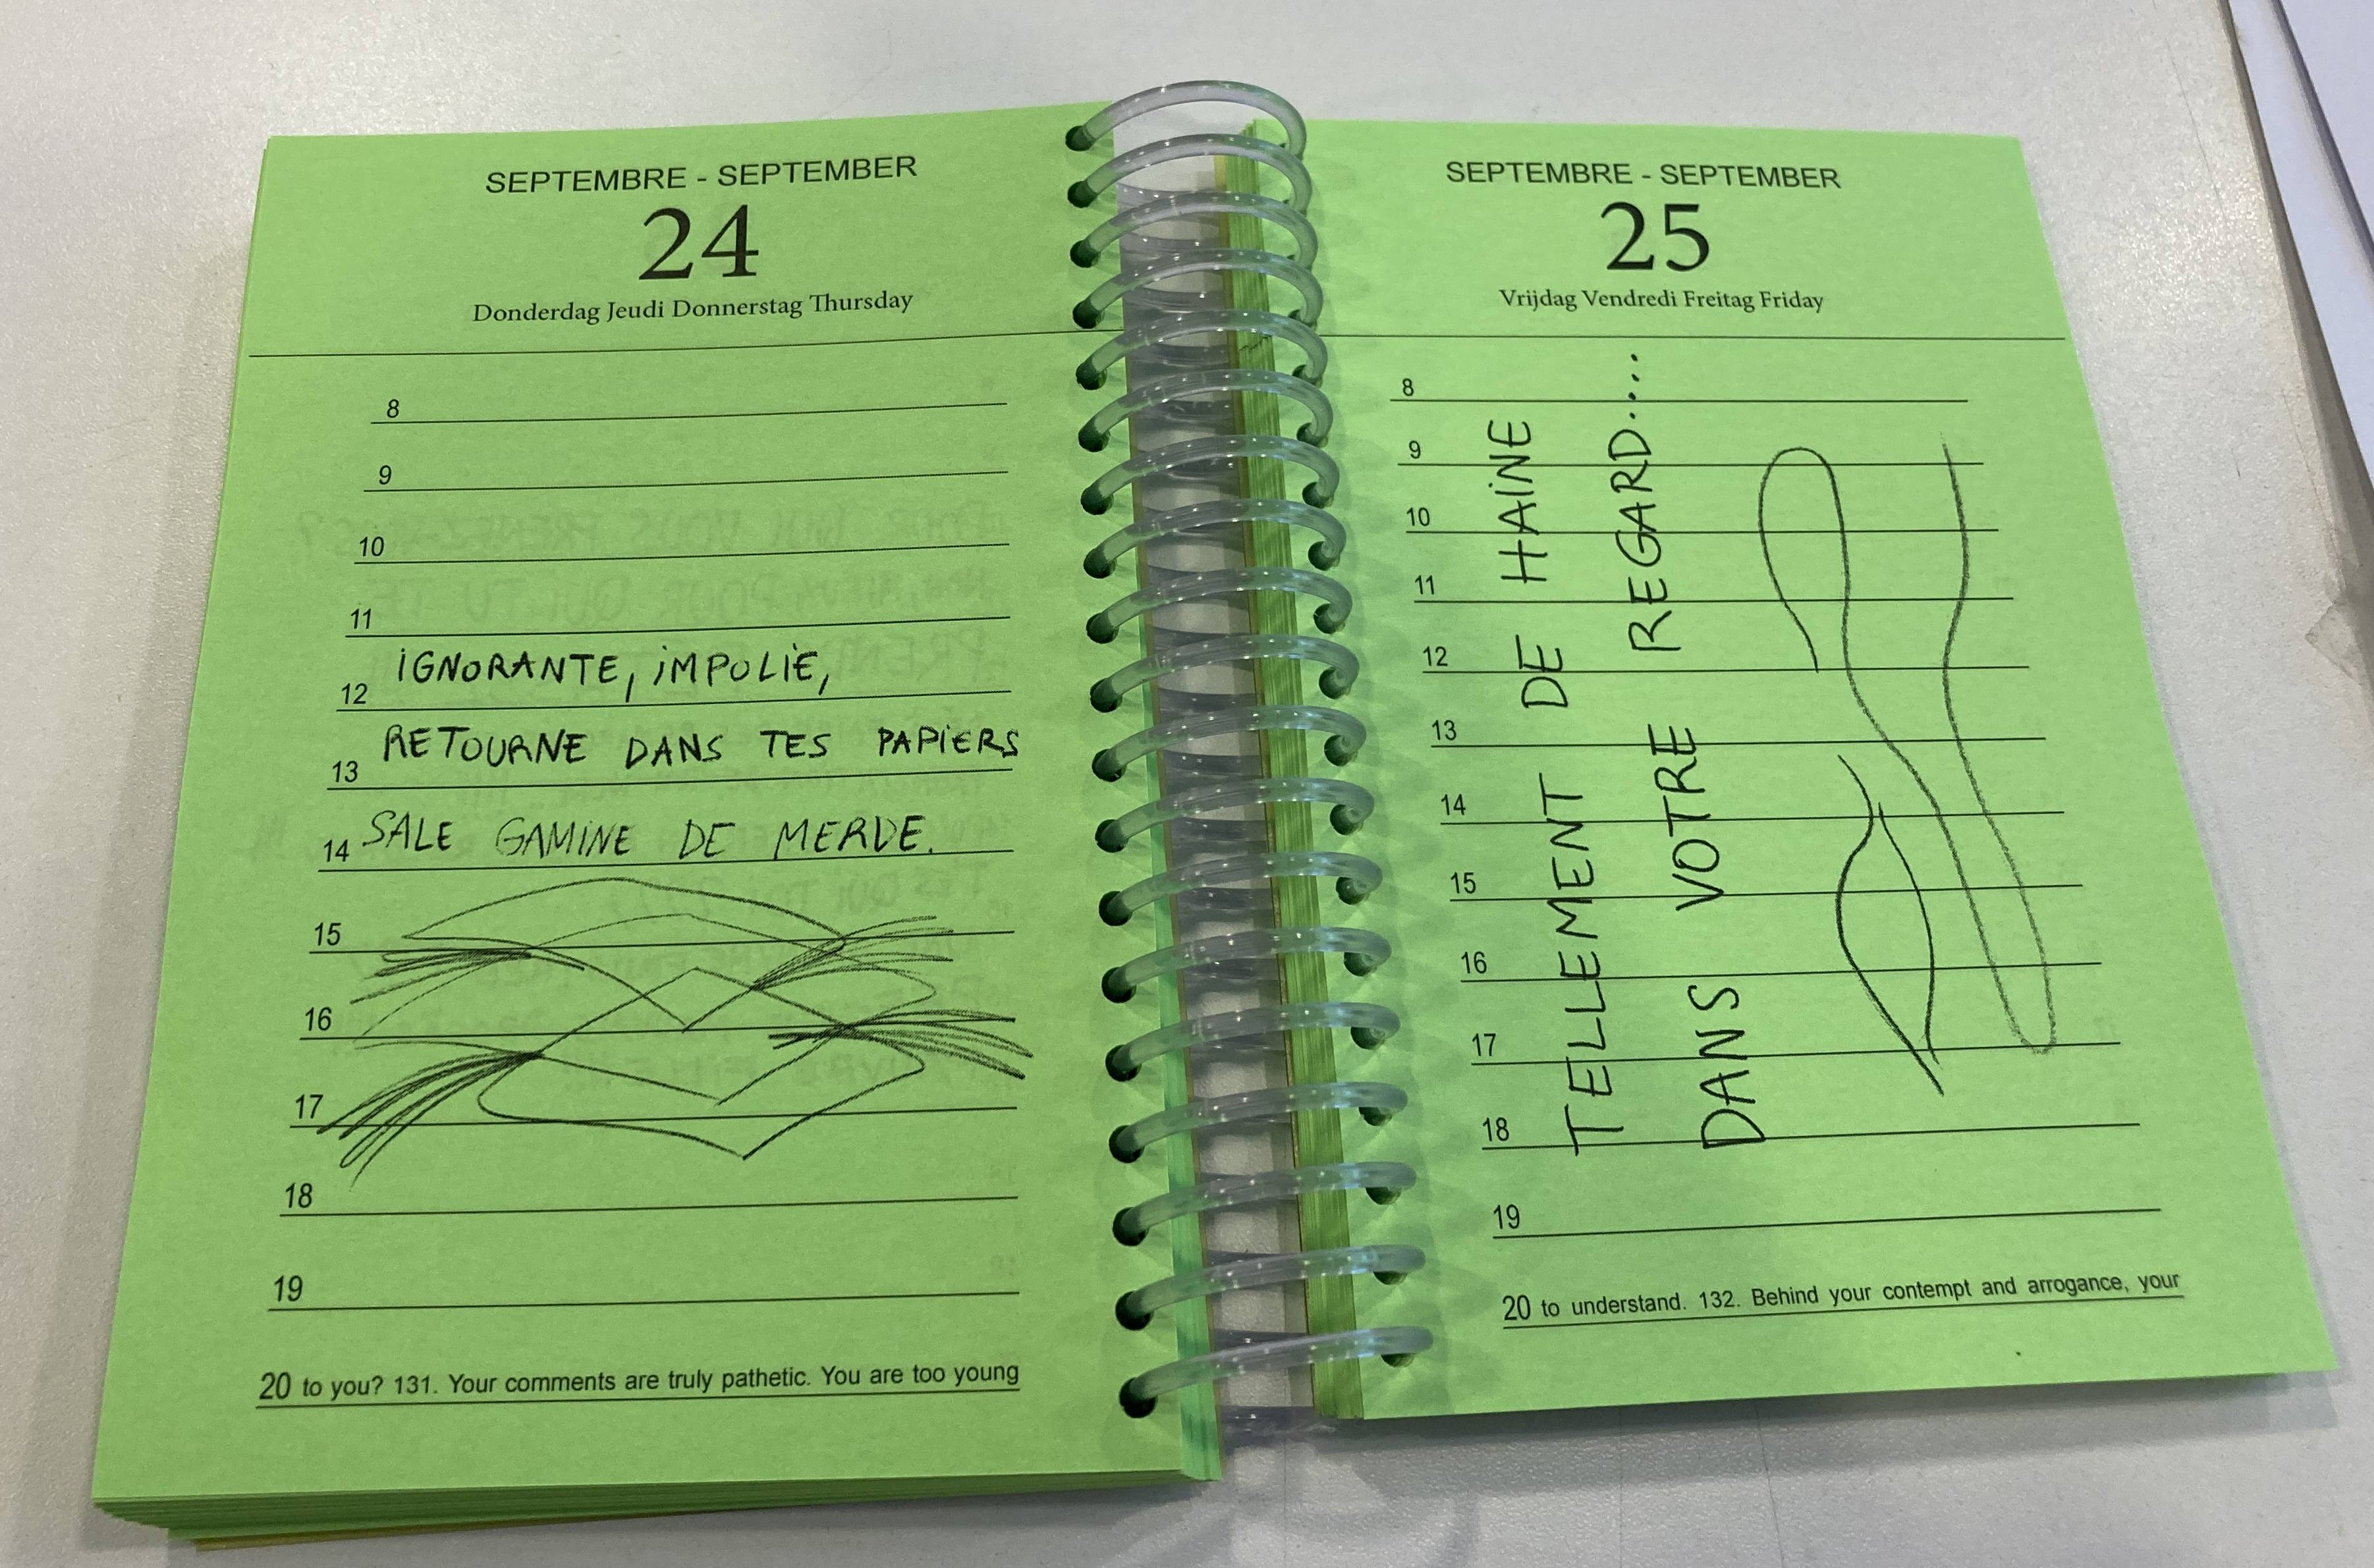 SEPTEMBRE - SEPTEMBER
24
Donderdag Jeudi Donnerstag Thursday
8
9
10
11
IGNORANTE, IMPOLIE,
12
RETOURNE DANS TES PAPIERS
13
SALE GAMINE DE MERDE.
14
15
16
17
18
19
20 to you? 131. Your comments are truly pathetic. You are too young
SEPTEMBRE - SEPTEMBER
25
Vrijdag Vendredi Freitag Friday
8
9
10
11
12
13
14
15
16
17
18
19
TELLEMENT DE HAINE
DANS VOTRE REGARD....
20 to understand. 132. Behind your contempt and arrogance, your